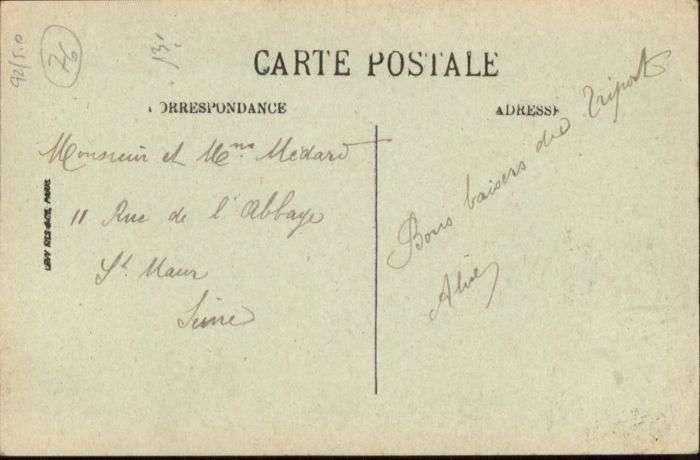 92/5.0
76
CARTE POSTALE
CORRESPONDANCE
ADRESSE
Monsieur et Mme Médard
11 Rue de l'Abbaye
St Maur
Seine
Bons baisers du Tréport
LEVY FILS & CIE, PARIS